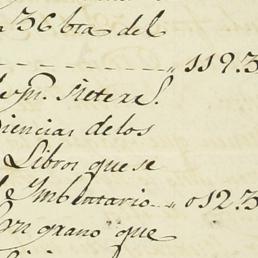 36 bta del
"119.3
de Jn. Sietere S.
diencias de los
Libros que se
Ymbentario - 012.3
grano que